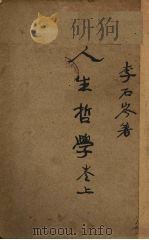 李石岑著
人生哲學 卷上